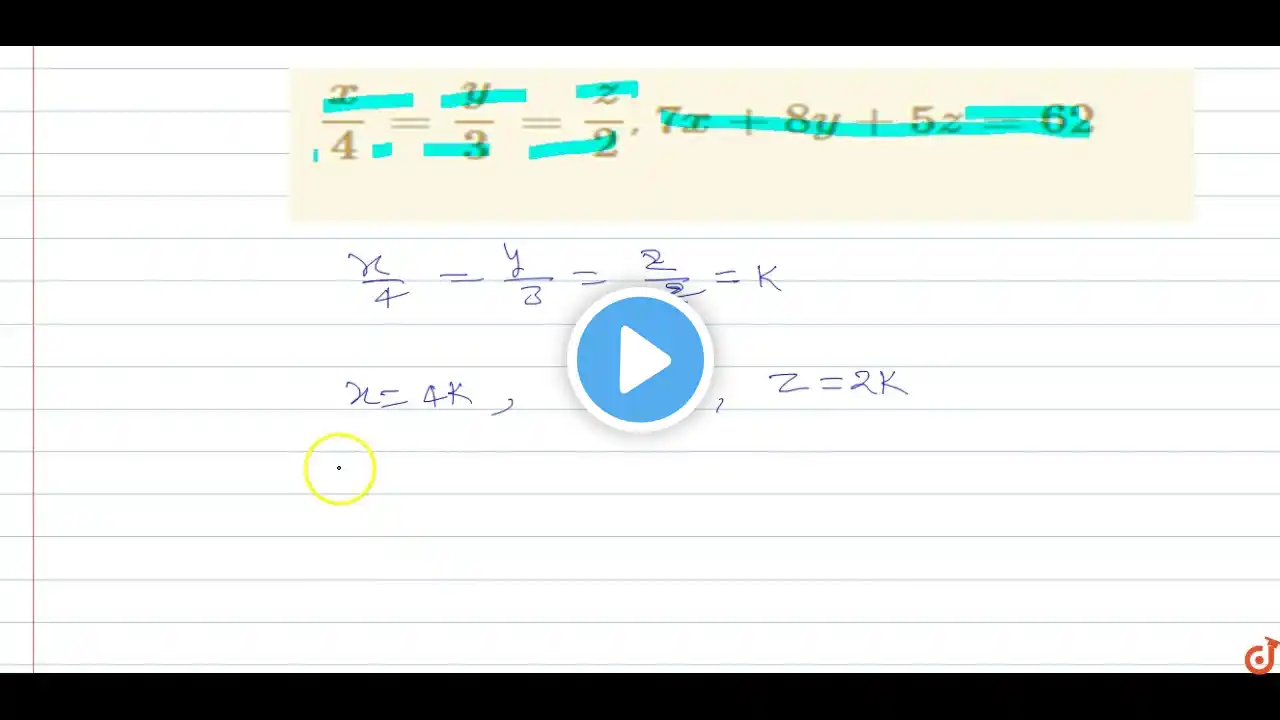 x/4 = y/3 = z/2, 7x + 8y + 5z = 62
x/4 = y/3 = z/2 = K
x = 4K , , z = 2K